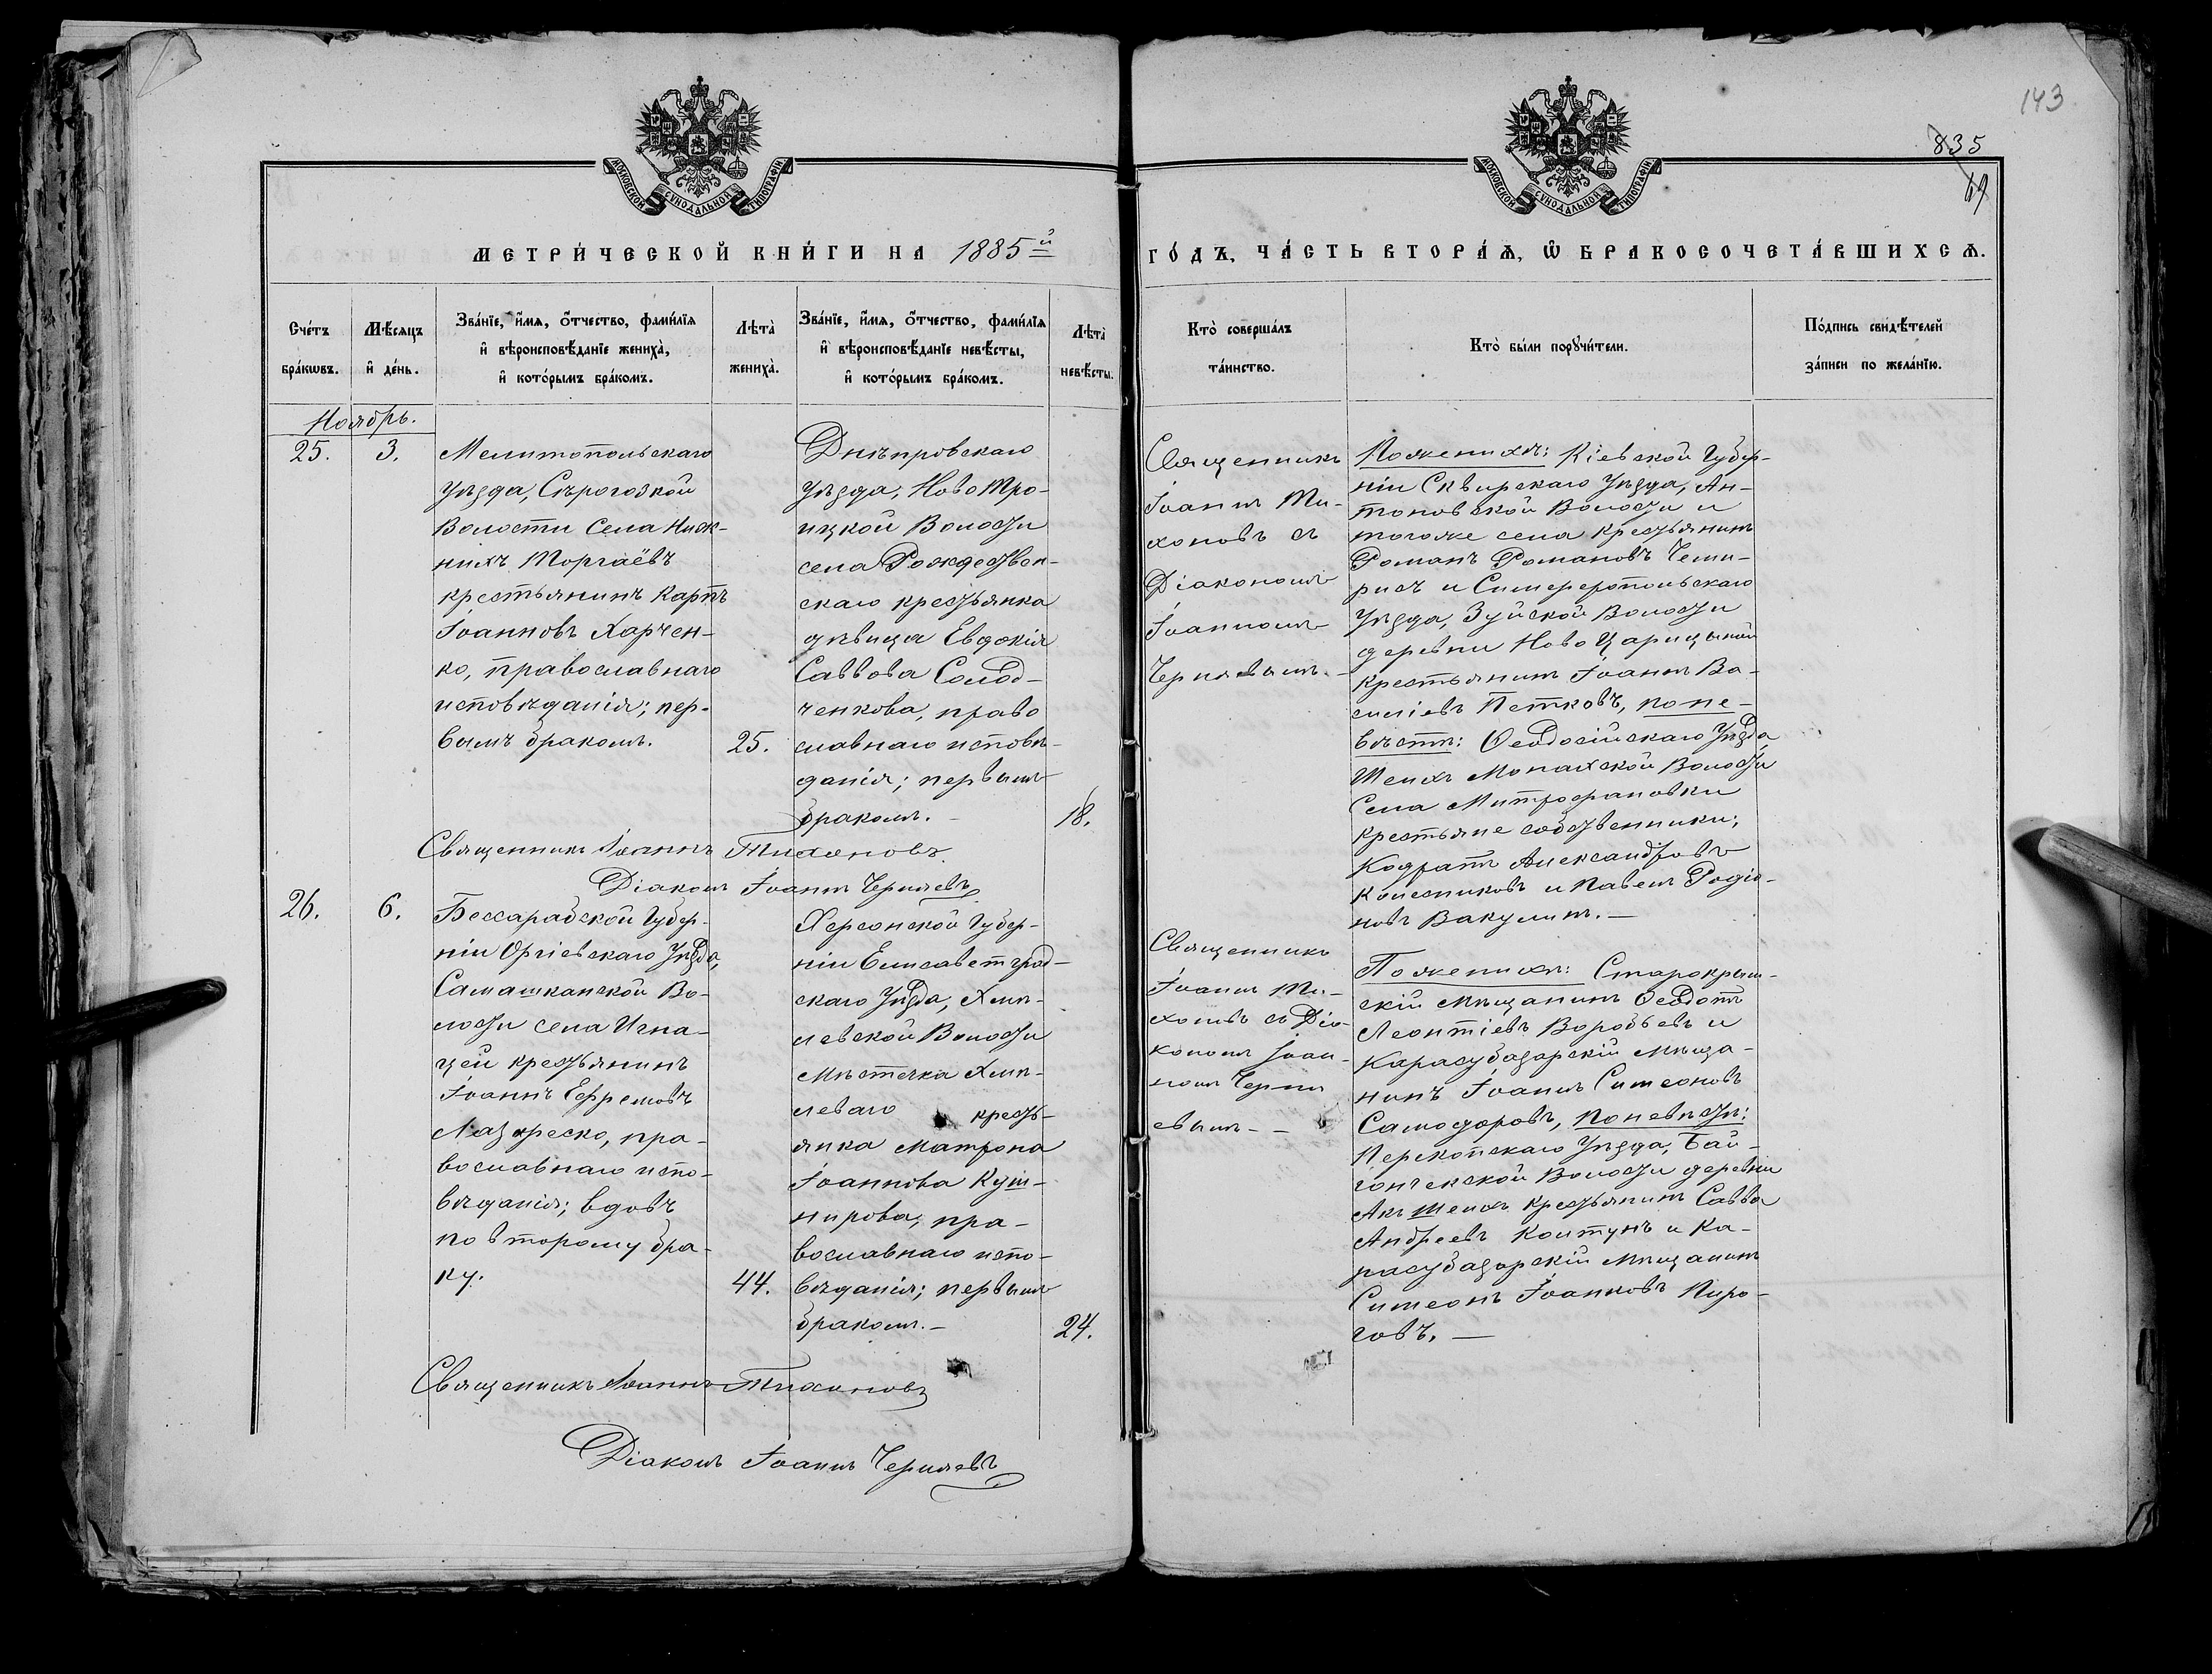 143
835
69
МОСКОВСКОЙ СѴНОДАЛЬНОЙ ТИПОГРАФІИ
МОСКОВСКОЙ СѴНОДАЛЬНОЙ ТИПОГРАФІИ
МЕТРИ́ЧЕСКОЙ КНИ́ГИ НА 1885й
ГО́ДЪ, ЧА́СТЬ ВТОРА́Ѧ, Ѡ БРАКОСОЧЕТА́ВШИХСѦ.
Сче́тъ
бра́кѡвъ.
Мѣ́сяцъ
и҆ де́нь.
Зва́нїе, и҆́мя, о҆́тчество, фами́лїя
и҆ вѣроисповѣ́данїе жениха̀,
и҆ кото́рымъ бра́комъ.
Лѣта̀
жениха̀.
Зва́нїе, и҆́мя, о҆́тчество, фами́лїя
и҆ вѣроисповѣ́данїе невѣ́сты,
и҆ кото́рымъ бра́комъ.
Лѣта̀
невѣ́сты.
Кто̀ соверша́лъ
та́инство.
Кто̀ бы́ли порꙋчи́тели.
По́дпись свидѣ́телей
за́писи по жела́нїю.
Ноябрь.
25.
3.
Мелитопольскаго
уѣзда, Сѣрогозкой
Волости Села Ниж-
нихъ Торгаёвъ
крестьянинъ Карпъ
Іоанновъ Харчен-
ко, православнаго
исповѣданія; пер-
вымъ бракомъ.
25.
Днѣпровскаго
уѣзда, Ново Тро-
ицкой Волости
села Рождествен-
скаго крестьянка
дѣвица Евдокія
Саввова Солод-
ченкова, право
славнаго исповѣ-
данія; первымъ
бракомъ. -
18.
Священникъ
Іоаннъ Ти-
хоновъ съ
Діакономъ
Іоанномъ
Черняевымъ. -
По женихѣ: Кіевской Губер-
ніи Сквирскаго Уѣзда, Ан-
тоновской Волости и
тогоже села крестьянинъ
Романъ Романовъ Чеми-
рисъ и Симферопольскаго
Уѣзда, Зуйской Волости
деревни Ново Царицыной
крестьянинъ Іоаннъ Ва-
силіевъ Петковъ, по не-
вѣстѣ: Ѳеодосійскаго Уѣзда,
Шейхъ Монахской Волости
Села Митрофановки
крестьяне собственники;
Кодратъ Александровъ
Колесниковъ и Павелъ Родіо-
новъ Вакулинъ. —
Священникъ Іоаннъ Тихоновъ.
Діаконъ Іоаннъ Черняевъ
26.
6.
Бессарабской Губер-
ніи Оргіевскаго Уѣзда,
Самашканской Во-
лости села Игна-
цей крестьянинъ
Іоаннъ Ефремовъ
Лазореско, пра-
вославнаго испо-
вѣданія; вдовъ
по второму бра-
ку.
44.
Херсонской Губер-
ніи Елисаветград-
скаго Уѣзда, Хмѣ-
левской Волости
Мѣстечка Хмѣ-
леваго кресть-
янка Матрона
Іоаннова Куш-
нирова, пра-
вославнаго испо-
вѣданія; первымъ
бракомъ. -
24.
Священникъ
Іоаннъ Ти-
хоновъ съ Діа-
кономъ Іоан-
номъ Черня
евымъ - -
По женихѣ: Старокрым-
скій Мѣщанинъ Ѳеодотъ
Леонтіевъ Воробьевъ и
Карасубазарскій Мѣща-
нинъ Іоаннъ Симеоновъ
Самодоровъ, по невѣстѣ:
Перекопскаго Уѣзда, Бай-
гончекской Волости деревни
Акъ Шейхъ крестьянинъ Савва
Андреевъ Колтунъ и Ка-
расубазарскій Мѣщанинъ
Симеонъ Іоанновъ Пиро-
говъ. —
Священникъ Іоаннъ Тихоновъ
Діаконъ Іоаннъ Черняевъ